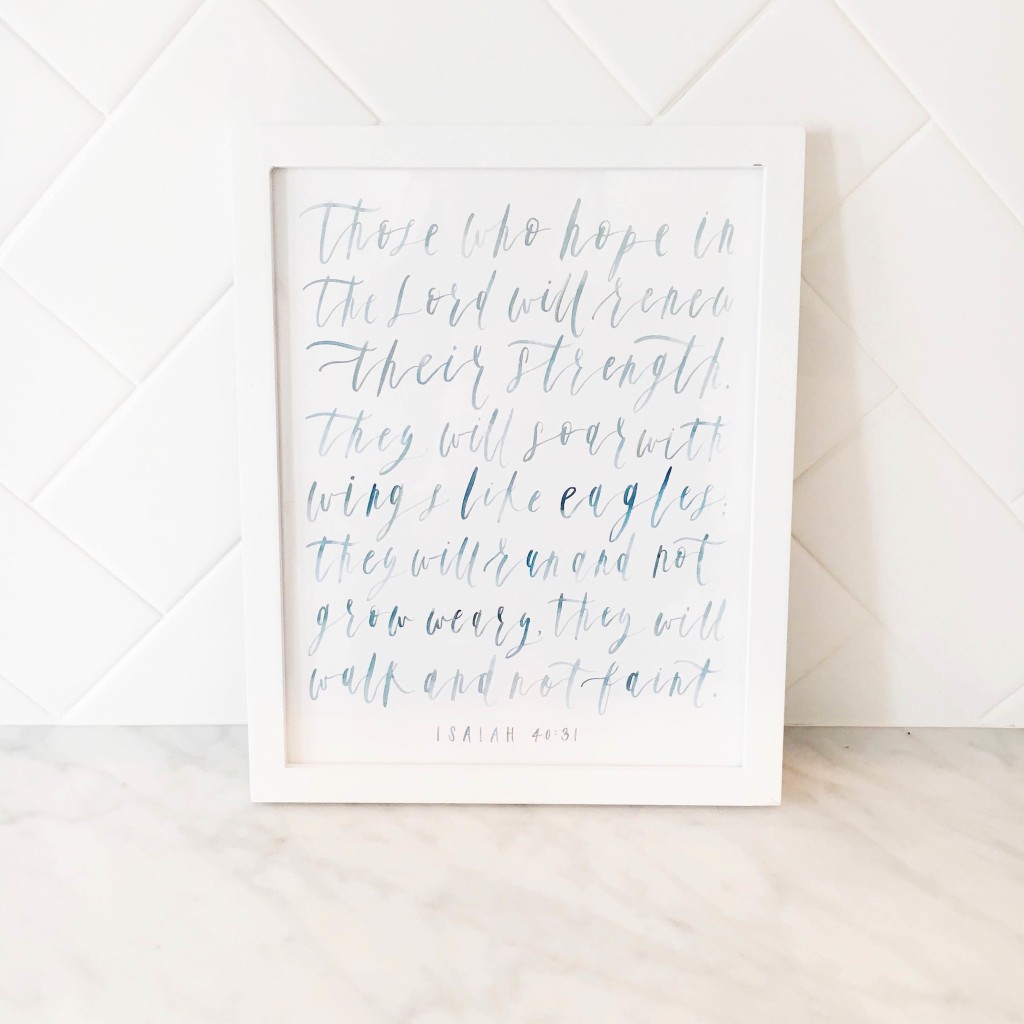 Those who hope in
the Lord will renew
their strength.
They will soar with
wings like eagles;
they will run and not
grow weary, they will
walk and not faint.
ISAIAH 40:31